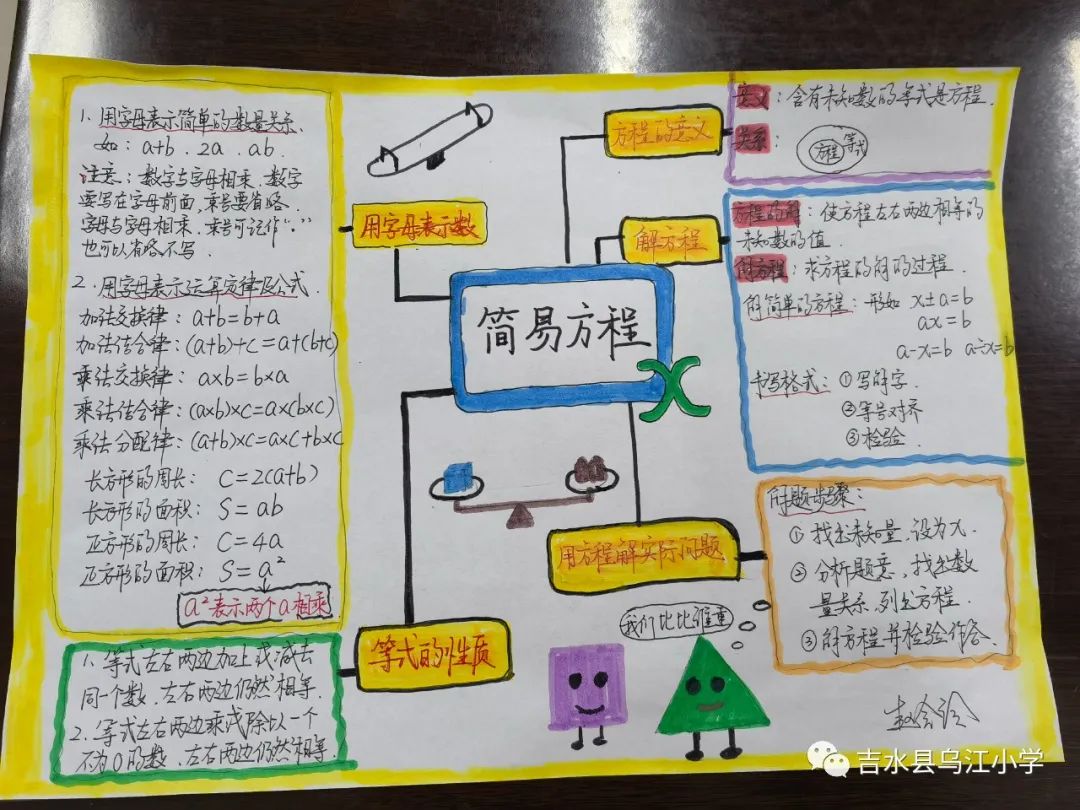 1、用字母表示简单的数量关系
如：a+b、2a、ab、
注意：数字与字母相乘、数字
要写在字母前面，乘号要省略、
字母与字母相乘，乘号可记作“·”
也可以省略不写、
2、用字母表示运算定律及公式
加法交换律：a+b=b+a
加法结合律：(a+b)+c=a+(b+c)
乘法交换律：a×b=b×a
乘法结合律：(a×b)×c=a×(b×c)
乘法分配律：(a+b)×c=a×c+b×c
长方形的周长：C=2(a+b)
长方形的面积：S=ab
正方形的周长：C=4a
正方形的面积：S=a²
a²表示两个a相乘
用字母表示数
1、等式左右两边加上或减去
同一个数，左右两边仍然相等、
2、等式左右两边乘或除以一个
不为0的数，左右两边仍然相等
等式的性质
简易方程
X
方程的意义
意义：含有未知数的等式是方程、
关系：
方程 等式
解方程
方程的解：使方程左右两边相等的
未知数的值、
解方程：求方程的解的过程、
解简单的方程：形如 x±a=b
ax=b
a-x=b a÷x=b
书写格式：①写解字、
②等号对齐
③检验、
用方程解实际问题
解题步骤：
①找出未知量，设为x、
②分析题意，找出数
量关系，列出方程、
③解方程并检验作答
我们比比谁重
吉水县乌江小学